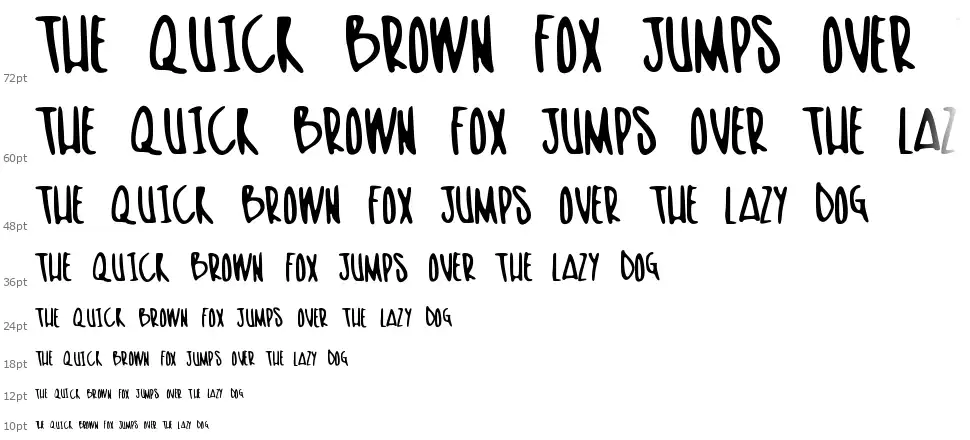 72pt THE QUICK BROWN FOX JUMPS OVER
60pt THE QUICK BROWN FOX JUMPS OVER THE LAZ
48pt THE QUICK BROWN FOX JUMPS OVER THE LAZY DOG
36pt THE QUICK BROWN FOX JUMPS OVER THE LAZY DOG
24pt THE QUICK BROWN FOX JUMPS OVER THE LAZY DOG
18pt THE QUICK BROWN FOX JUMPS OVER THE LAZY DOG
12pt THE QUICK BROWN FOX JUMPS OVER THE LAZY DOG
10pt THE QUICK BROWN FOX JUMPS OVER THE LAZY DOG